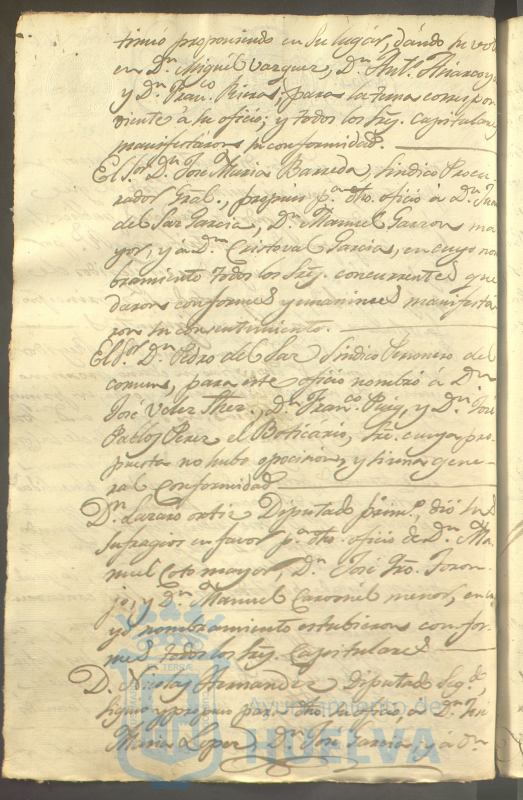 tinuo proponiendo en su lugar, dando su voto
en Dn. Miguel Vazquez, Dn. Ant.
y Dn. Franco. Rivas, para la terna correspon
diente á su oficio; y todos los Sres. Capitulares
manifestaron su conformidad.
El Sor. Dn. José Maria Barreda, Sindico Procu
rador Gral., propuso pa. dho. oficio á Dn. Juan
del Saz Garcia, Dn. Manuel Garzon ma
yor, y á Dn. Cristoval Garcia, en cuyo nom
bramiento todos los Sres. concurrentes que
daron conformes y unanimes manifesta
ron su consentimiento.
El Sor. Dn. Pedro del Saz Sindico Personero del
comun, para este oficio nombró á Dn.
José Velez, Dn. Franco. Puig, y Dn. José
Pablos Perez el Boticario, en cuya pro
puesta no hubo oposicion, y si una gene
ral conformidad
Dn. Lazaro Ortiz Diputado primo. dió sus
sufragios en favor pa. dho. oficio de Dn. Ma
nuel Cotomayor, Dn. José
jo, y Dn. Manuel Coronel menor, en cu
yo nombramiento estubieron confor
mes todos los Sres. Capitulares
D. Nicolas Hernandez Diputado Segdo.
siguio y propuso para dho. su oficio, á Dn. José
Maria Lopez, Dn. José Garcia, y á Dn.
Ayuntamiento de
HUELVA